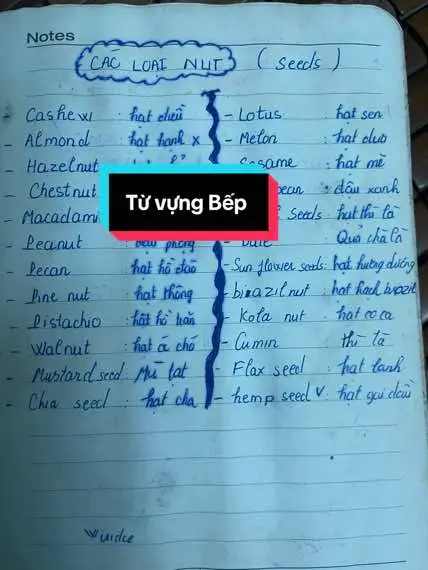 Notes
CÁC LOẠI NUT ( seeds )
Cashew : hạt điều
- Almond : hạt hạnh x
- Hazelnut
- Chestnut
- Macadami
- Peanut : đậu phộng
- Pecan : hạt hồ đào
- Pine nut : hạt thông
- Pistachio : hạt hồ trăn
- Walnut : hạt óc chó
- Mustard seed : Mù tạt
- Chia seed : hạt chia
- Lotus : hạt sen
- Melon : hạt dưa
Sesame : hạt mè
bean : đậu xanh
seeds : hạt thì là
Quả chà là
- Sun flower seeds : hạt hướng dương
- brazil nut : hạt hạch brazil
- Kola nut : hạt coca
- Cumin thì là
- Flax seed : hạt lanh
- hemp seed v : hạt gai dầu
Từ vựng Bếp